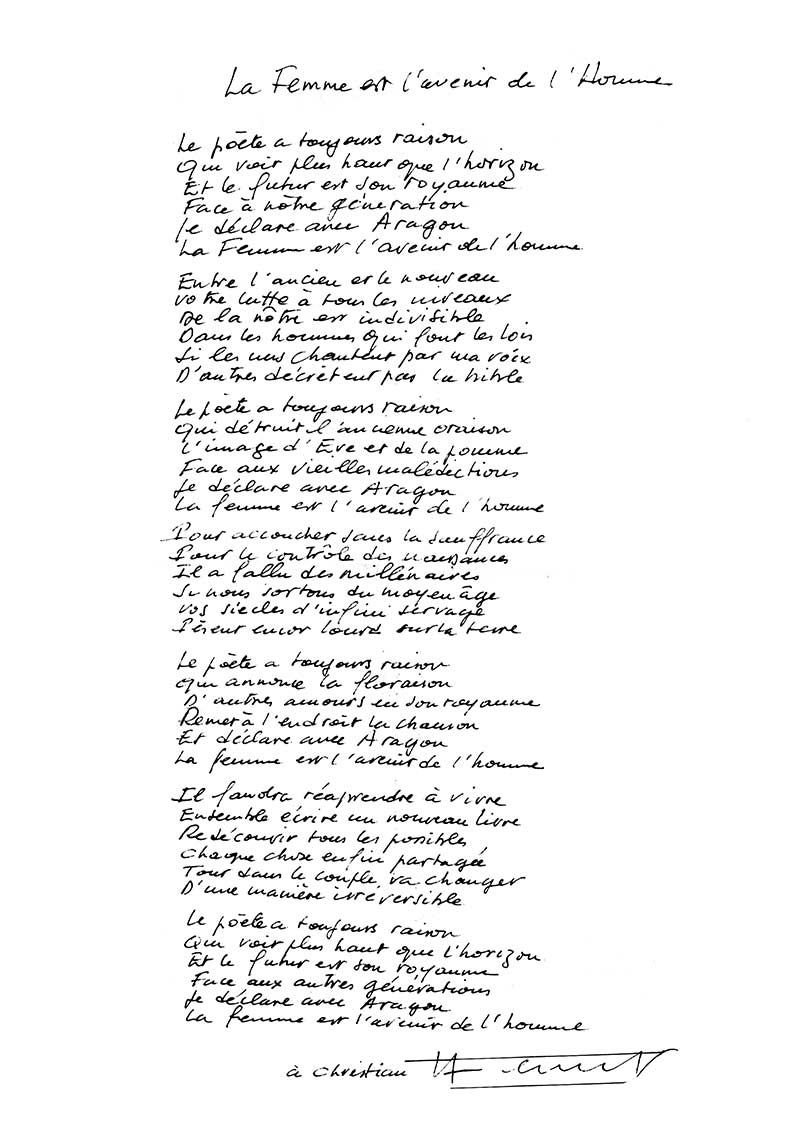 La Femme est l'avenir de l'Homme
Le poète a toujours raison
Qui voit plus haut que l'horizon
Et le futur est son royaume
Face à nôtre génération
Je déclare avec Aragon
La Femme est l'avenir de l'homme
Entre l'ancien et le nouveau
votre lutte à tous les niveaux
De la nôtre est indivisible
Dans les hommes qui font les lois
Si les uns chantent par ma voix
D'autres décrètent par la bible
Le poète a toujours raison
Qui détruit l'ancienne oraison
L'image d'Eve et de la pomme
Face aux vieilles malédictions
Je déclare avec Aragon
La femme est l'avenir de l'homme
Pour accoucher sans la souffrance
Pour le contrôle des naissances
Il a fallu des millénaires
Si nous sortons du moyen âge
vos siècles d'infini servage
Pèsent encor lourd sur la terre
Le poète a toujours raison
Qui annonce la floraison
D'autres amours en son royaume
Remet à l'endroit la chanson
Et déclare avec Aragon
La femme est l'avenir de l'homme
Il faudra réaprendre à vivre
Ensemble écrire un nouveau livre
Redécouvrir tous les possibles
Chaque chose enfin partagée
Tout dans le couple va changer
D'une manière irréversible
Le poète a toujours raison
Qui voit plus haut que l'horizon
Et le futur est son royaume
Face aux autres générations
Je déclare avec Aragon
La femme est l'avenir de l'homme
à Christian